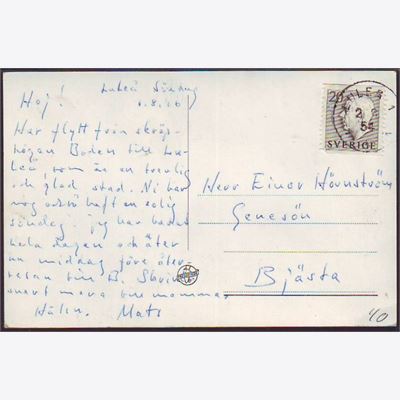 Luleå Söndag
1.8.
Hej!
Har flytt från skräp-
högen Boden till Lu-
leå, som är en trevlig
och glad stad. Ni har
nog också haft en solig
söndag. Jag har badat
hela dagen och äter
nu middag före åter-
resan till B. Skriver
snart mera till mamma.
Häln. Mats
Herr Einar Hörnström
Genesön
Bjästa
20
2
54
SVERIGE
40